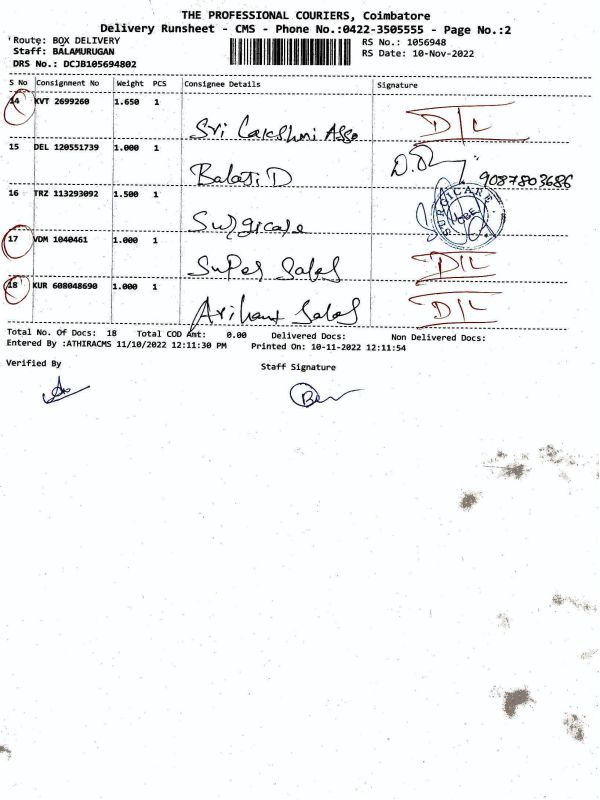 THE PROFESSIONAL COURIERS, Coimbatore
Delivery Runsheet - CMS - Phone No.:0422-3505555 - Page No.:2
Route: BOX DELIVERY
RS No.: 1056948
Staff: BALAMURUGAN
RS Date: 10-Nov-2022
DRS No.: DCJB105694802
S No Consignment No Weight PCS Consignee Details Signature
14 KVT 2699260 1.650 1 Sri Lakshmi Asso D/L
15 DEL 120551739 1.000 1 Balaji D 9087803686
16 TRZ 113293092 1.500 1 Surgicare SURGICARE CBE
17 VDM 1040461 1.000 1 Super Sales D/L
18 KUR 608048690 1.000 1 Arihant Sales D/L
Total No. Of Docs: 18 Total COD Amt: 0.00 Delivered Docs: Non Delivered Docs:
Entered By :ATHIRACMS 11/10/2022 12:11:30 PM Printed On: 10-11-2022 12:11:54
Verified By
Staff Signature